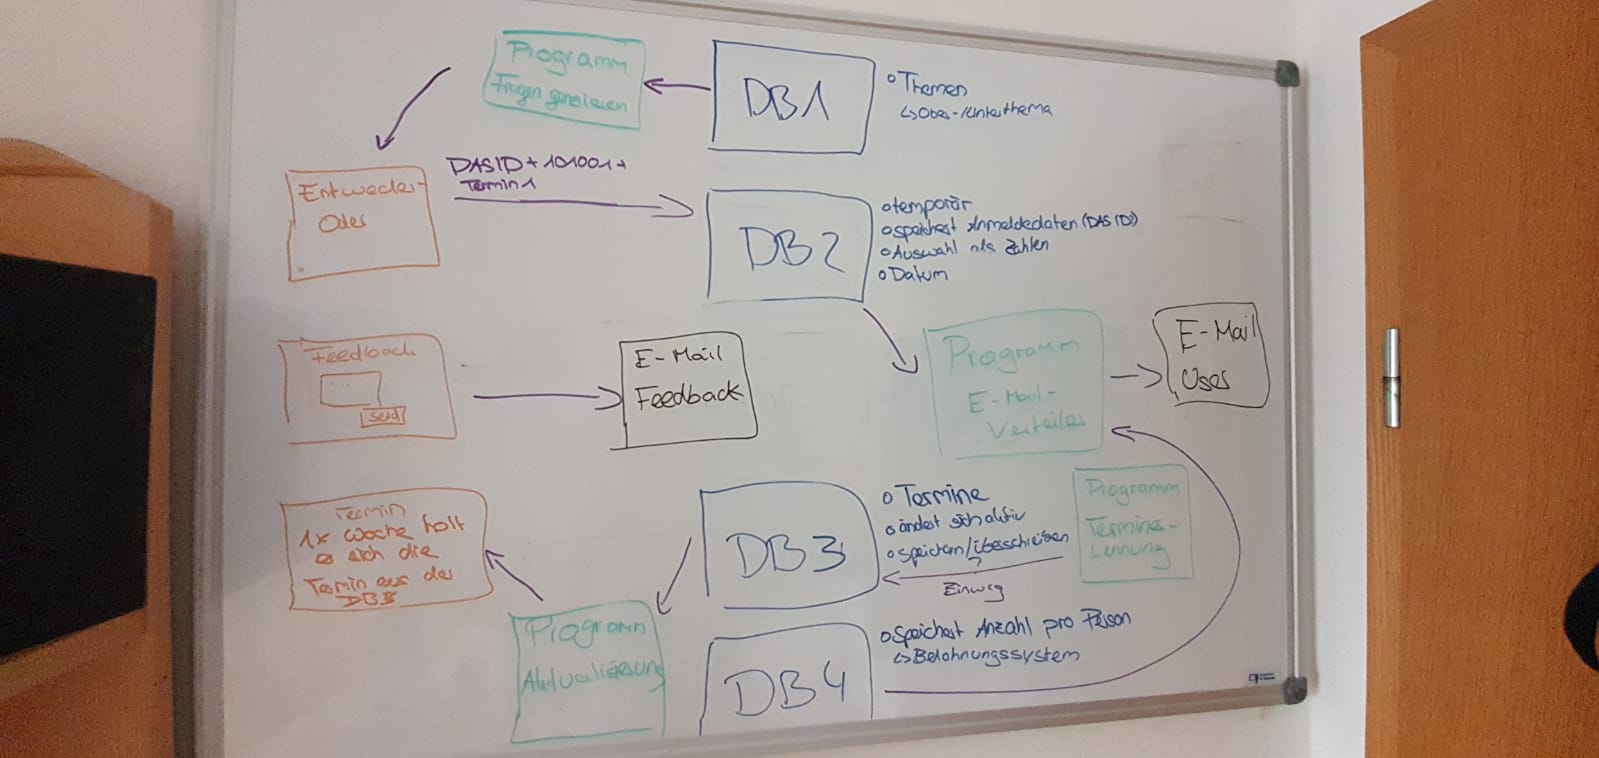 Programm
Fragen generieren
DB1
Themen
↳Ober-/Unterthema
Entweder-
Oder
DASID+101001+
Termin1
DB2
temporär
speichert Anmeldedaten (DAS ID's)
Auswahl als Zahlen
Datum
Feedback
...
send
E-Mail
Feedback
Programm
E-Mail-
Verteiler
E-Mail
User
Termin
1x Woche holt
es sich die
Termin aus der
DB3
Programm
Aktualisierung
DB3
Termine
ändert sich aktiv
speichern/überschreiben
Einweg
Programm
Termine-
DB4
Speichert Anzahl pro Person
↳Belohnungssystem